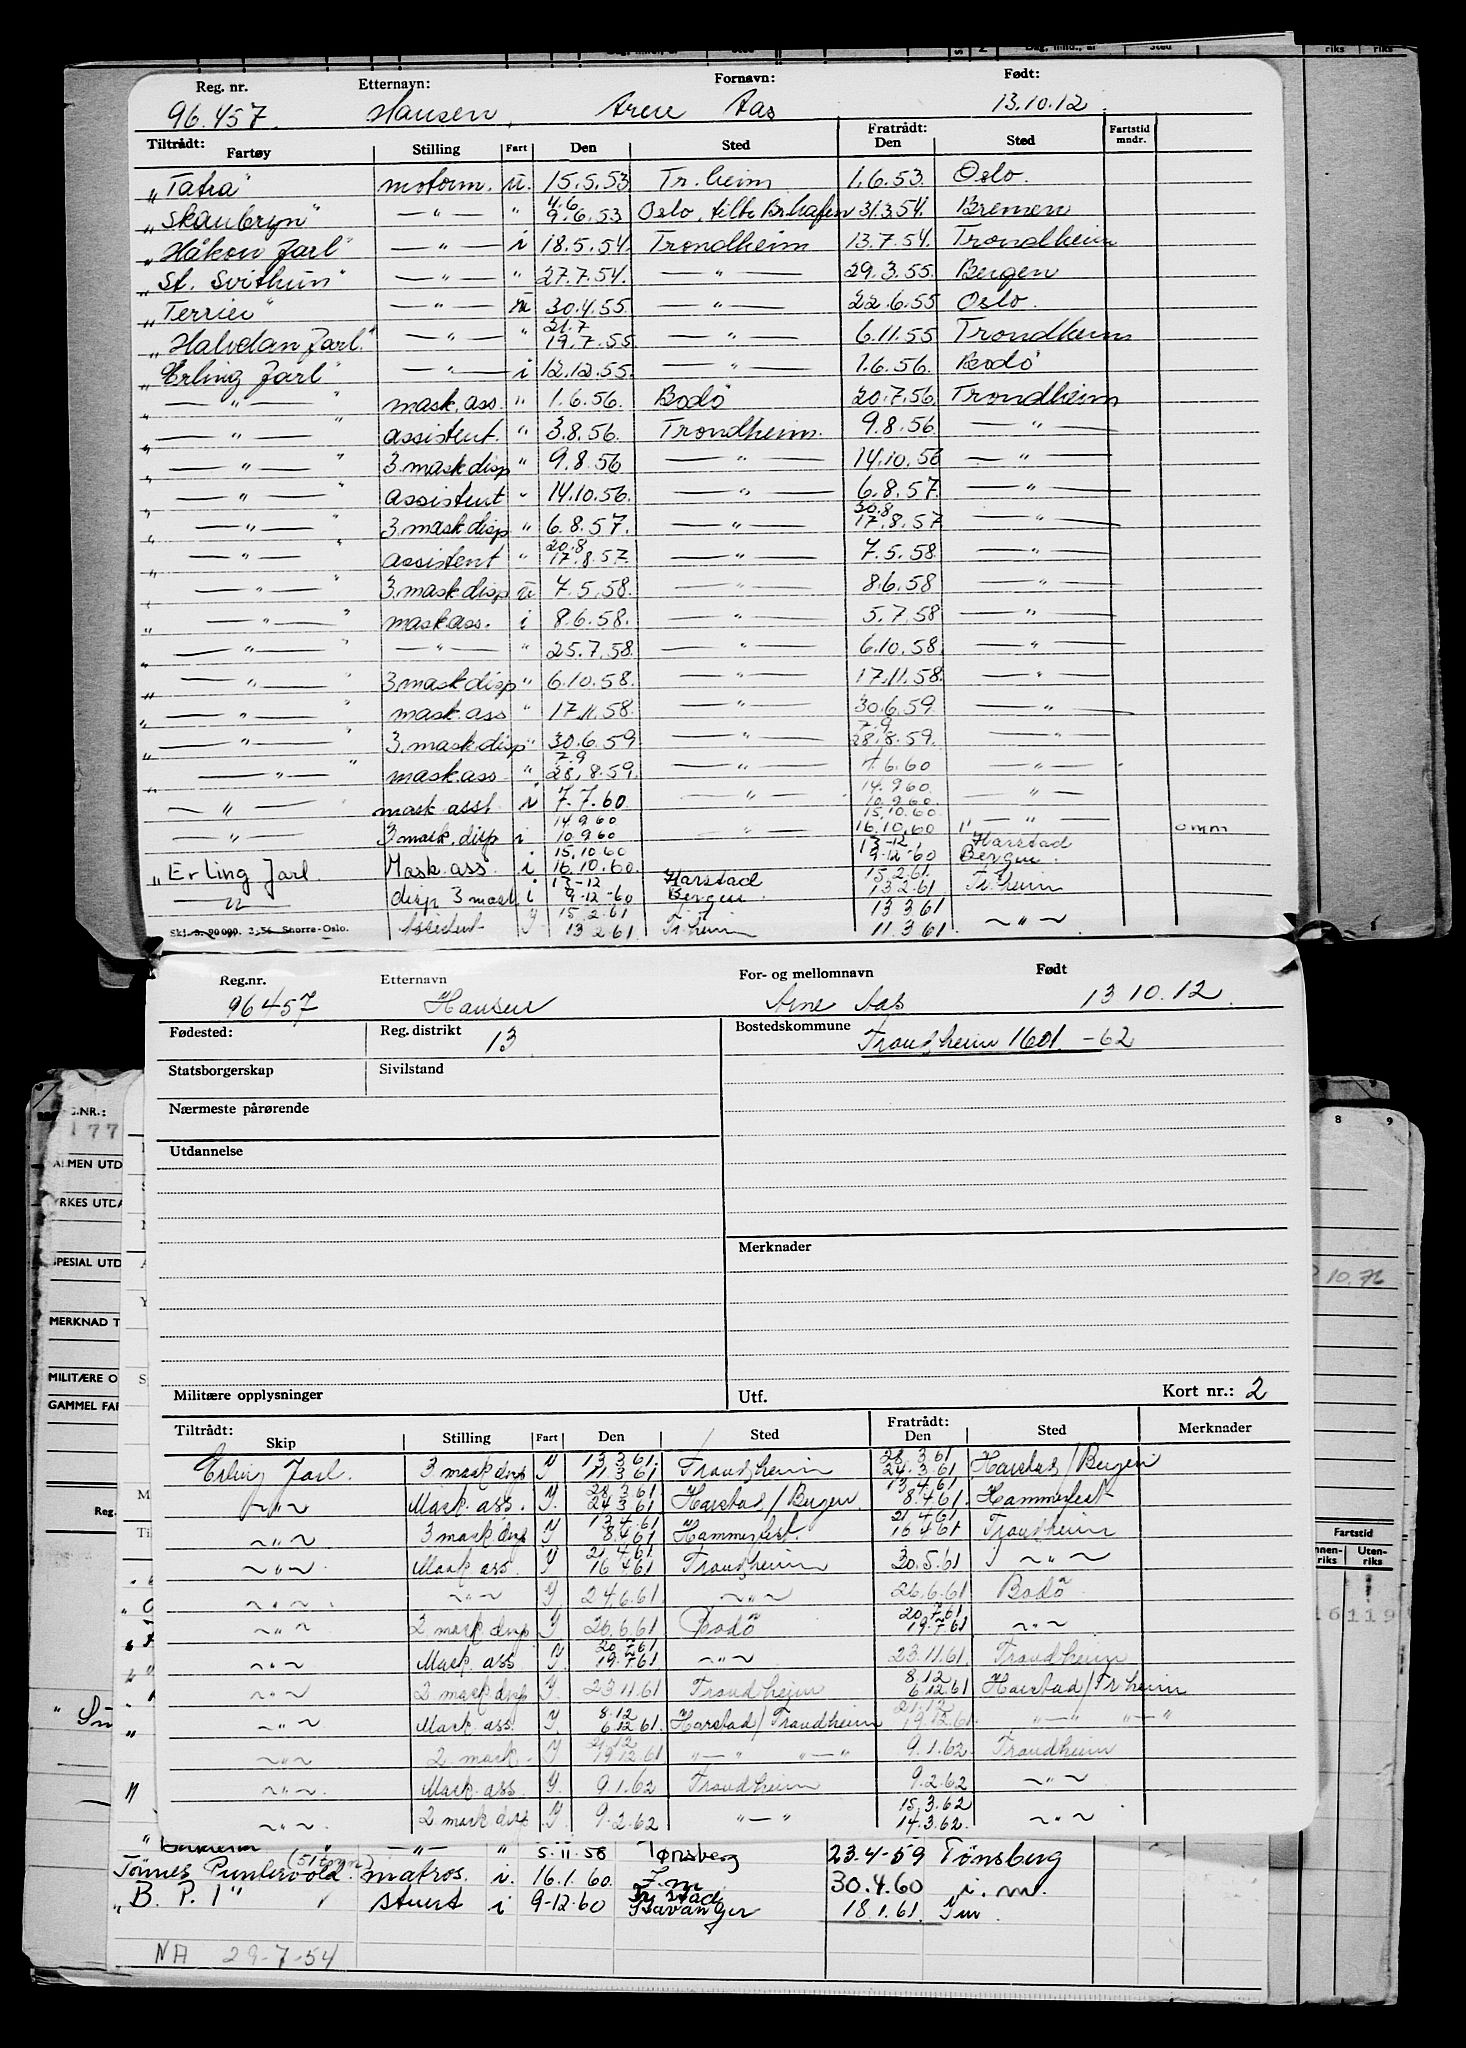 Reg. nr. Etternavn: Fornavn: Født:
96.457. Hansen, Arne Aas 13.10.12
Tiltrådt: Fratrådt: Fartstid
Fartøy Stilling Fart Den Sted Den Sted mndr.
„Tatra" motorm. u. 15.5.53 Tr.heim 1.6.53. Oslo.
4.6
„Skaubryn" —"— " 9.6.53 Oslo, tilb. Br.hafen 31.3.54. Bremen
„Håkon Jarl" —"— i 18.5.54. Trondheim 13.7.54. Trondheim
„St. Svithun" —"— " 27.7.54. —"— 29.3.55. Bergen
„Terrier" —"— u 30.4.55 —"— 22.6.55 Oslo.
21.7
„Halvdan Jarl." —"— " 19.7.55 —"— 6.11.55 Trondheim
„Erling Jarl" —"— i 12.12.55. —"— 1.6.56. Bodö
„ —"— " mask.ass. " 1.6.56. Bodö 20.7.56. Trondheim
„ —"— " assistent. " 3.8.56. Trondheim. 9.8.56. —"—
„ —"— " 3.mask disp " 9.8.56 —"— 14.10.56 —"—
„ —"— " assistent " 14.10.56. —"— 6.8.57. —"—
30.8
„ —"— " 3.mask disp " 6.8.57. —"— 17.8.57 —"—
20.8
„ —"— " assistent " 17.8.57. —"— 7.5.58. —"—
„ —"— " 3.mask disp u 7.5.58. —"— 8.6.58 —"—
„ —"— " mask ass. i 8.6.58. —"— 5.7.58 —"—
„ —"— " —"— " 25.7.58. —"— 6.10.58. —"—
„ —"— " 3 mask disp " 6.10.58. —"— 17.11.58. —"—
„ —"— " mask ass " 17.11.58. —"— 30.6.59. —"—
7.9
„ —"— " 3.mask disp " 30.6.59 —"— 28.8.59. —"—
7.9
„ —"— " mask.ass. " 28.8.59. —"— 7.6.60 —"—
14.9.60
—"— mask asst. i 7.7.60 —"— 10.9.60 —"—
14.9.60 15.10.60.
—"— 3 mask. disp i 10.9.60 —"— 16.10.60 "
omm
15.10.60 13-12, Harstad
„Erling Jarl. Mask.ass. i 16.10.60. 9-12-60 Bergen.
13-12 Harstad 15.2.61.
—"— disp 3 mask i 9-12-60 Bergen. 13.2.61 Tr.heim
15.2.61 13 3 61
Assistent Y 13 2 61. Tr.heim 11.3 61. ~"~
Skj. S. 90 000. 3.56 Snorre-Oslo.
Reg.nr. Etternavn For- og mellomnavn Født
96457 Hansen Arne Aas 13 10.12.
Fødested: Reg. distrikt 13 Bostedskommune
Trondheim 1601 -62
Statsborgerskap Sivilstand
Nærmeste pårørende
Utdannelse
Merknader
Militære opplysninger Utf. Kort nr.: 2
Tiltrådt: Fratrådt:
Skip Stilling Fart Den Sted Den Sted Merknader
13 3 61. 28.3 61
Erling Jarl. 3 mask disp Y 11 3 61 Trondheim 24.3.61 Harstad/Bergen
28.3.61 13.4.61
~"~ Mask. ass. Y. 24 3 61 Harstad/Bergen. 8.4.61. Hammerfest
13.4.61 21 4.61
~"~ 3 mask disp Y 8.4 61 Hammerfest. 16 4 61 Trondheim
21 4.61
~"~ Mask ass. Y 16 4 61 Trondheim 30.5.61 ~"~
~"~ ~"~ Y. 24.6.61. ~"~ 26.6.61 Bodö
20.7.61
~"~ 2 mask disp Y 26.6.61 Bodö 19.7.61 ~"~
20.7.61
~"~ Mask. ass Y. 19.7.61 ~"~ 23.11.61. Trondheim
8.12
~"~ 2 mask disp Y. 23.11.61 Trondheim 6.12.61 Harstad/Tr.heim
8.12 21.12
~"~ Mask. ass. Y. 6.12.61. Harstad/Trondheim 19.12.61. "—" "—"
21.12
~"~ 2. mask. Y 19.12.61 "—" "—" 9.1.62 Trondheim
~"~ Mask. ass Y. 9.1.62 Trondheim 9.2.62 ~"~
15.3.62
~"~ 2 mask disp Y. 9.2.62 "—" 14.3.62. ~"~
—"— " 5-11-58 Tønsberg 23.4-59 Tönsberg
(51 tonn)
Tönnes Puntervold. matros. i. 16.1.60. I.m 30.4.60 i.m.
„B. P. 1" stuert i 9-12-60 Stavanger 18.1.61.
NA 29-7-54
G.NR.:
177
ALMEN UTD
YRKES UTDA
SPESIAL UTD
MERKNAD T
MILITÆRE O
GAMMEL FAR
Reg.
8 9
10.76
Fartstid
Innen-riks Uten-riks
16 11 9
riks riks